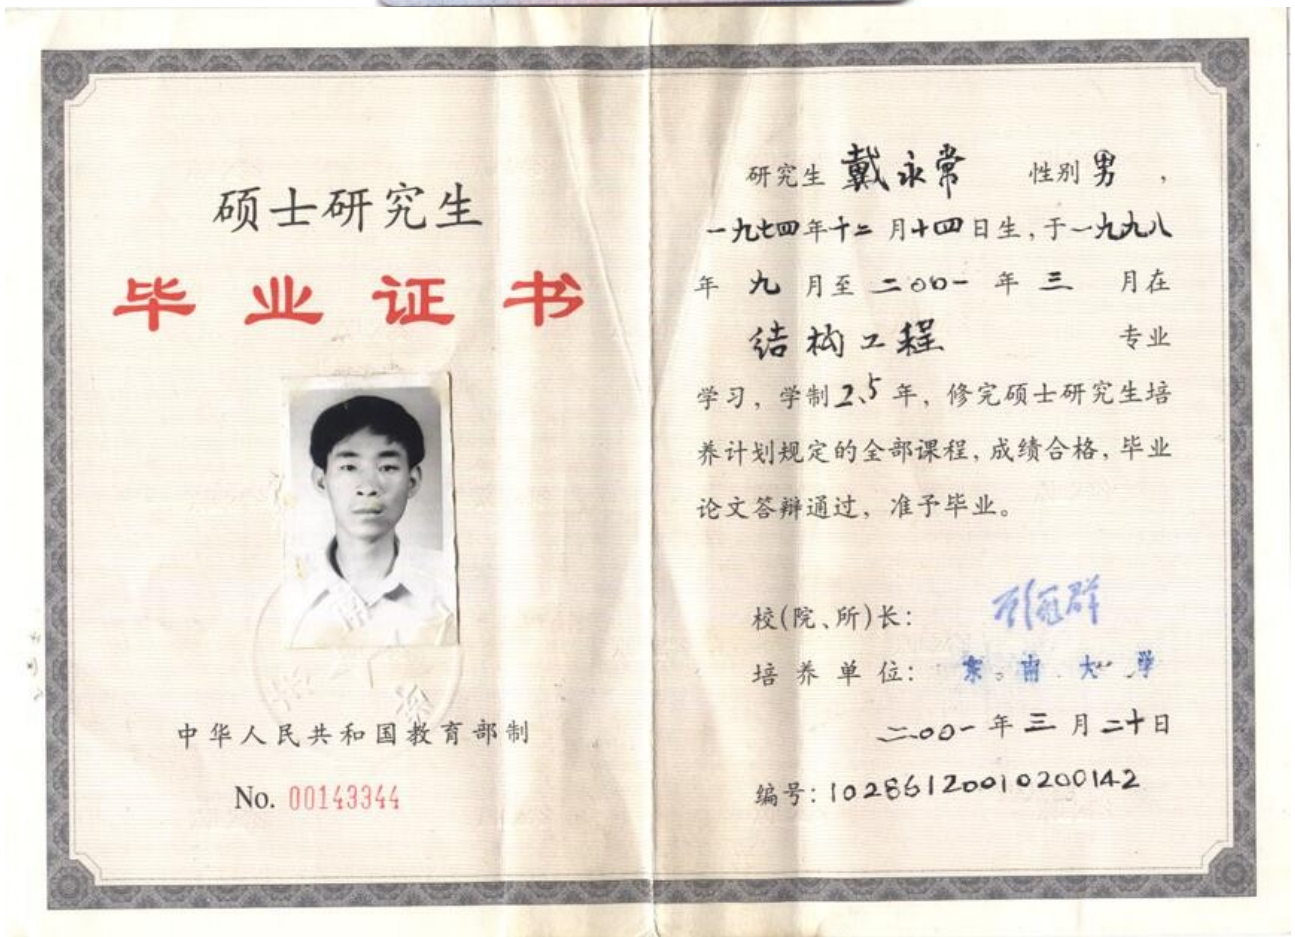 硕士研究生
毕业证书
中华人民共和国教育部制
No. 00143344
研究生 戴永常 性别 男，
一九七四年十二月十四日生，于一九九八
年 九 月至 二00一 年 三 月在
结构工程 专业
学习，学制2.5年，修完硕士研究生培
养计划规定的全部课程，成绩合格，毕业
论文答辩通过，准予毕业。
校(院、所)长：
培养单位：东南大学
二00一年三月二十日
编号：10286120010200142